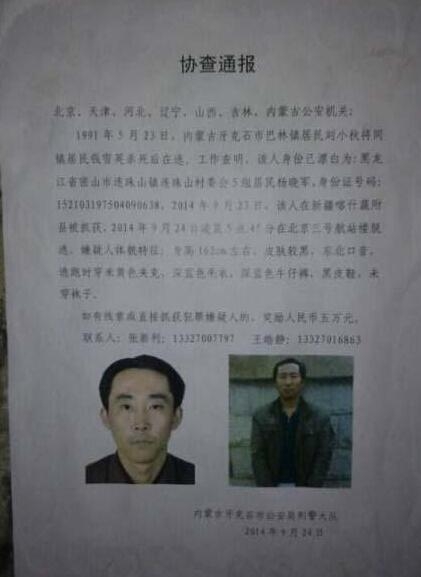 协查通报
北京、天津、河北、辽宁、山西、吉林、内蒙古公安机关：
1991年5月23日，内蒙古牙克石市巴林镇居民刘小秋将同
镇居民钱雪英杀死后在逃。工作查明，该人身份已漂白为：黑龙
江省密山市连珠山镇连珠山村委会5组居民杨晓军，身份证号码：
152103197504090638，2014年9月23日，该人在新疆喀什
县被抓获，2014年9月24日凌晨5点4分在北京三号航站楼脱
逃。嫌疑人体貌特征：身高162cm左右，皮肤较黑，东北口音，
逃跑时穿米黄色夹克，深蓝色毛衣，深蓝色牛仔裤，黑皮鞋，未
穿袜子。
如有线索或直接抓获犯罪嫌疑人的，奖励人民币五万元。
联系人：张新利：13327007797 王皓静：13327016863
内蒙古牙克石市公安局刑警大队
2014年9月24日